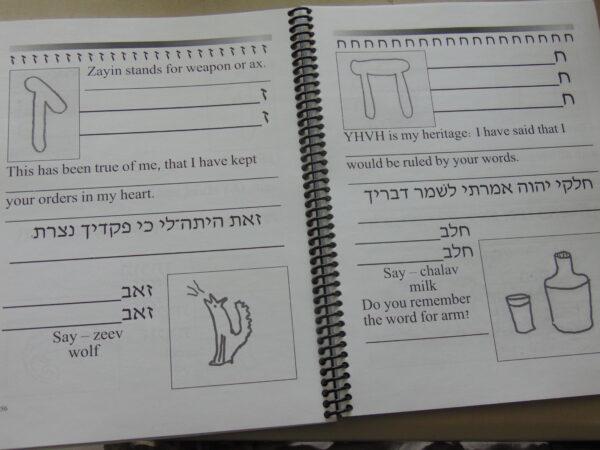 ז ז ז ז ז ז ז ז ז ז ז ז ז ז ז ז ז ז ז ז
Zayin stands for weapon or ax.
ז
ז
This has been true of me, that I have kept
your orders in my heart.
זאת היתה־לי כי פקדיך נצרת.
זאב
זאב
Say – zeev
wolf
56
ח ח ח ח ח ח ח ח ח ח ח ח ח ח ח ח ח ח ח ח
ח
ח
ח
YHVH is my heritage: I have said that I
would be ruled by your words.
חלקי יהוה אמרתי לשמר דבריך
חלב
חלב
Say – chalav
milk
Do you remember
the word for arm?